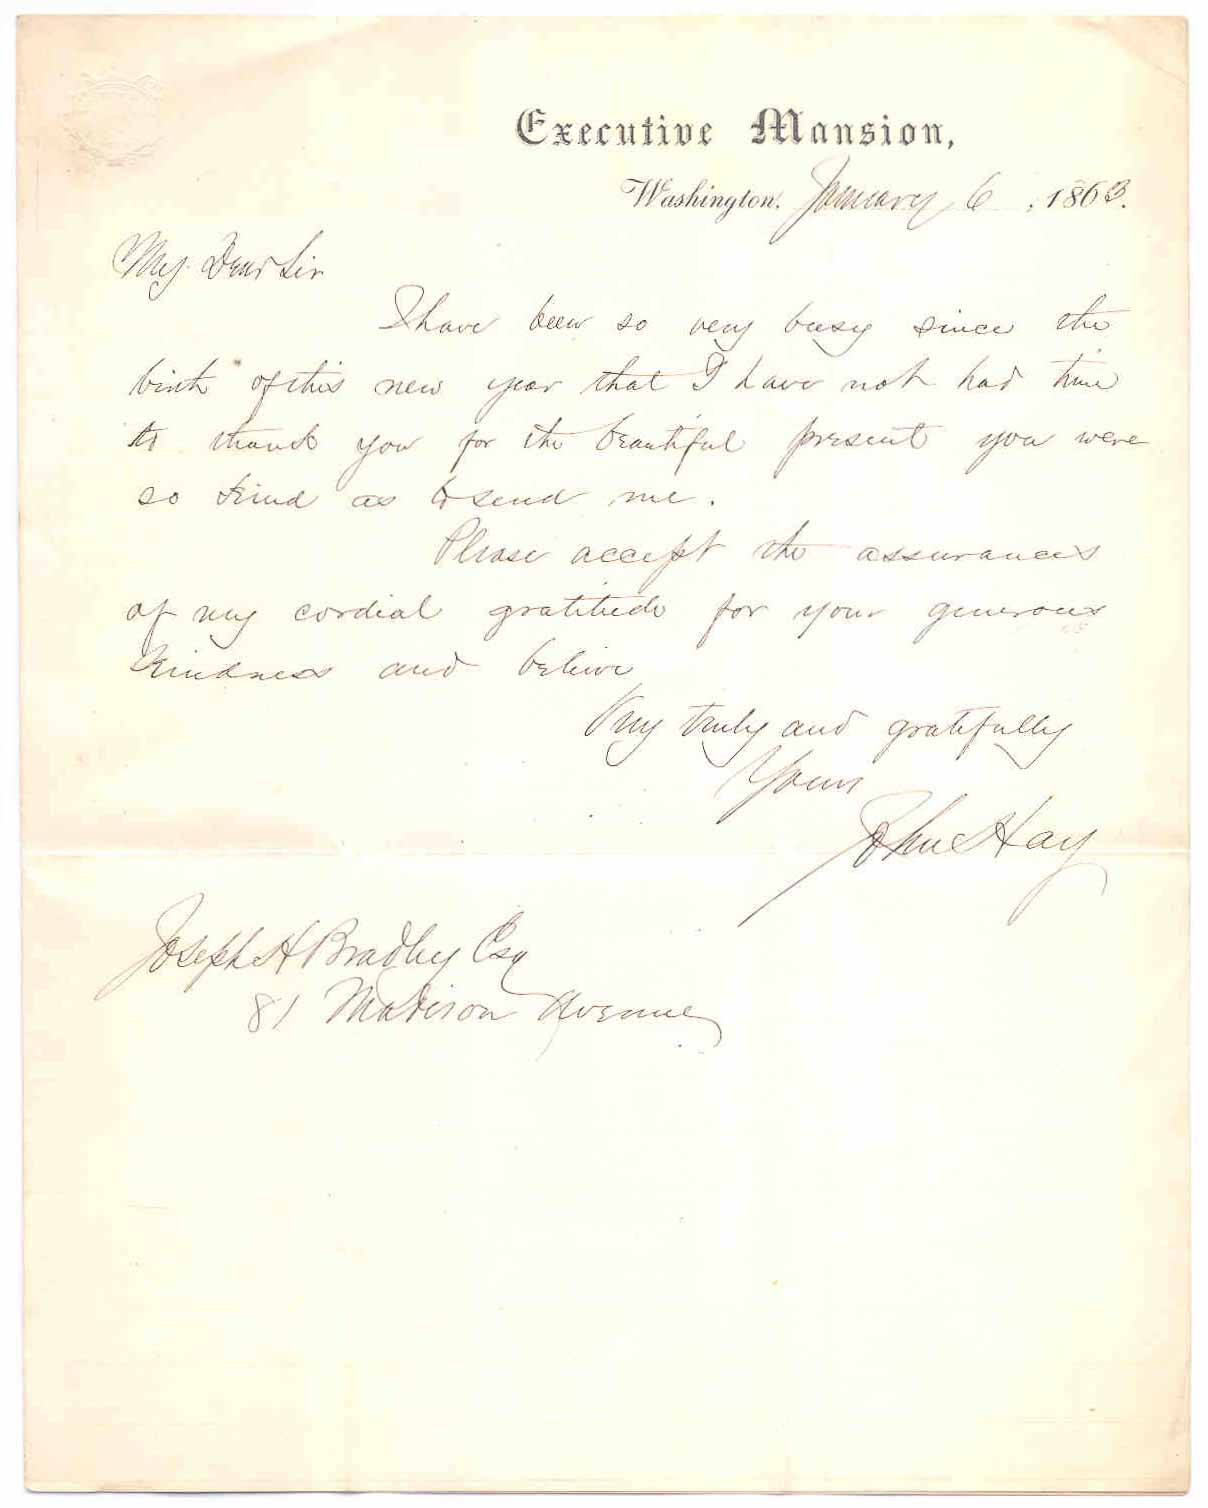 Executive Mansion,
Washington, January 6, 1863.
My Dear Sir
I have been so very busy since the
birth of this new year that I have not had time
to thank you for the beautiful present you were
so kind as to send me.
Please accept the assurances
of my cordial gratitude for your generous
kindness and believe
Very truly and gratefully
Yours
John Hay
Joseph H Bradley Esq
81 Madison Avenue